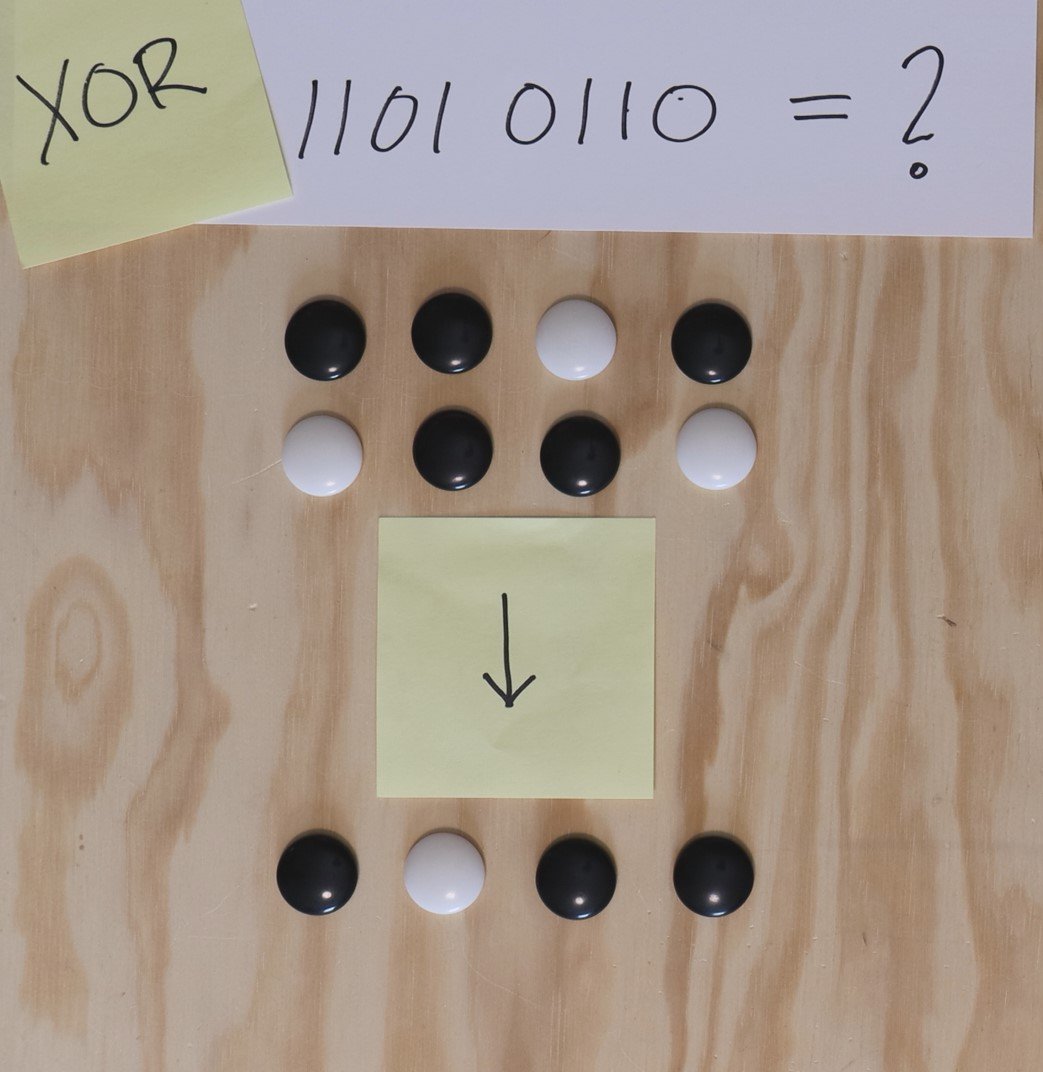 XOR 1101 0110 = ?
↓